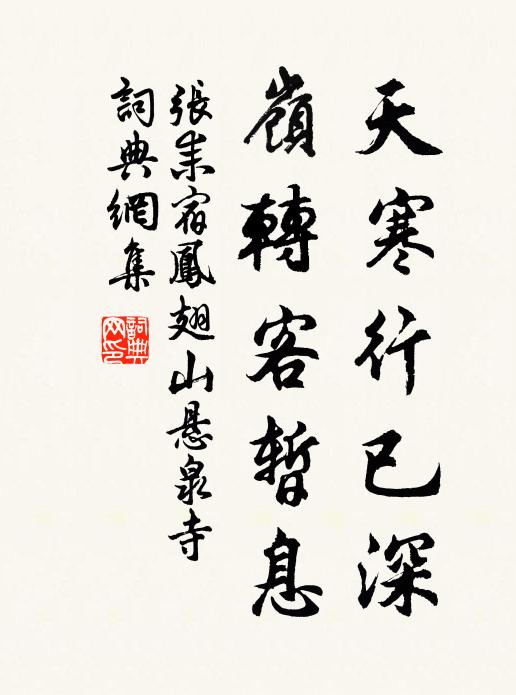 天寒行已深
嶺轉客暫息
張耒宿鳳翅山懸泉寺
詞典網集
詞典
网印